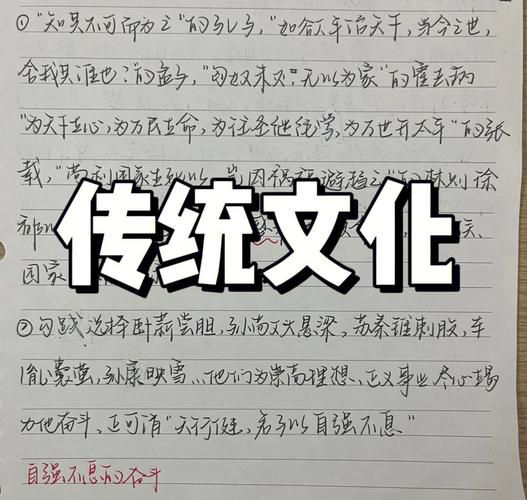 ①"知其不可而为之"的孔子,"如欲平治天下,当今之世,
舍我其谁也?"的孟子,"匈奴未灭,无以为家"的霍去病
"为天下立心,为万民立命,为往圣继绝学,为万世开太平"的张
载,"苟利国家生死以,岂因祸福避趋之"的林则徐
都
传统文化
国家
②勾践选择卧薪尝胆,孙敬头悬梁,苏秦锥刺股,车
胤囊萤,孙康映雪…他们为崇高理想、正义事业尽心竭
力地奋斗,正可谓"天行健,君子以自强不息"
自强不息的奋斗